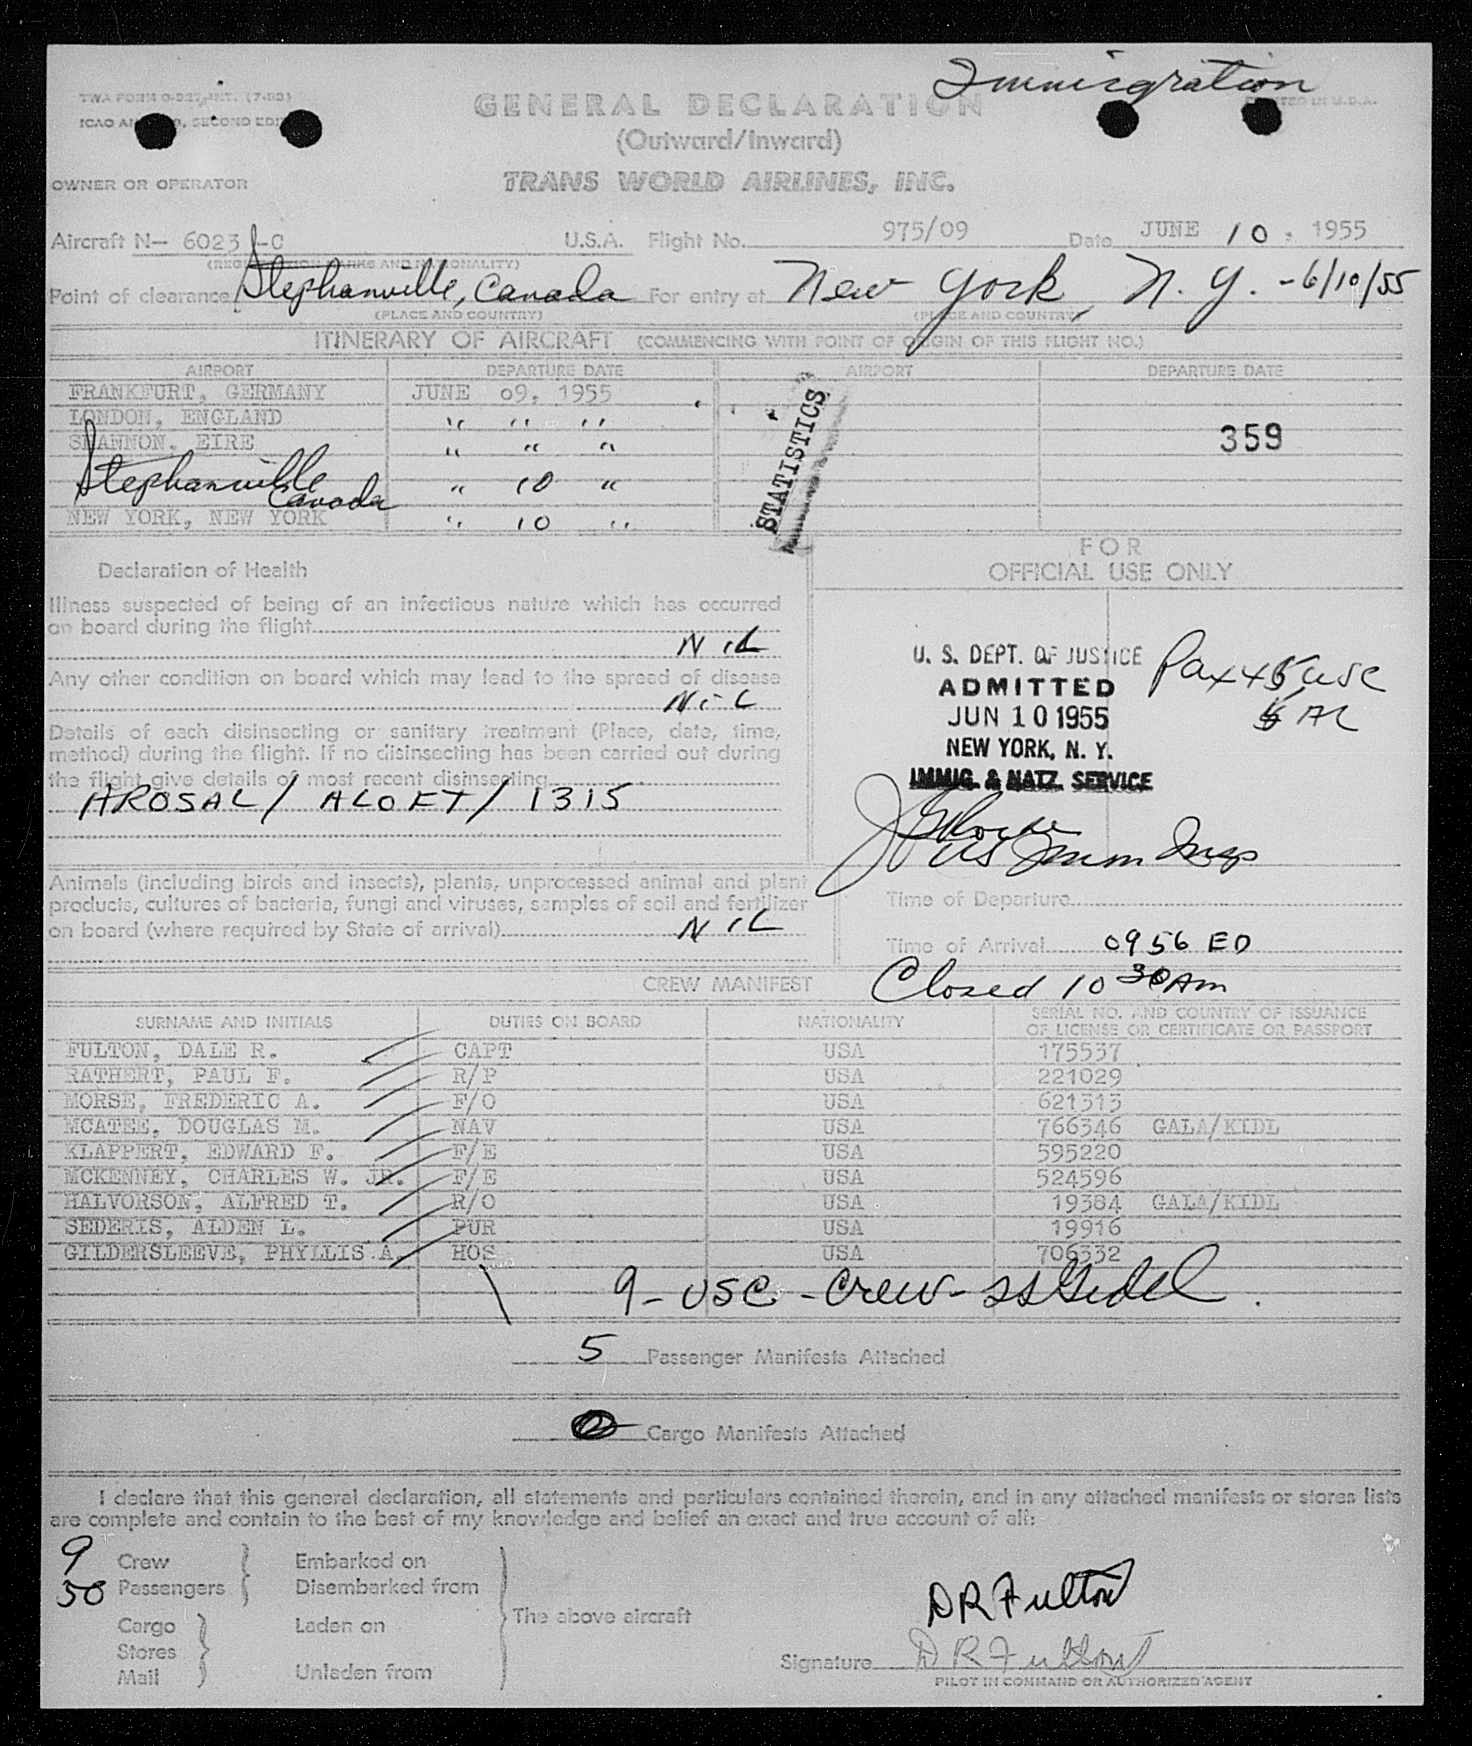 Immigration
TWA FORM O-227, INT. (7-53)
GENERAL DECLARATION
PRINTED IN U.S.A.
ICAO AN , SECOND EDI
(Outward/Inward)
OWNER OR OPERATOR
TRANS WORLD AIRLINES, INC.
Aircraft N— 6023 -C U.S.A. Flight No. 975/09 Date JUNE 10, 1955
(REGISTRATION MARKS AND NATIONALITY)
Point of clearance Stephanville, Canada For entry at New York, N. Y. - 6/10/55
(PLACE AND COUNTRY) (PLACE AND COUNTRY)
ITINERARY OF AIRCRAFT (COMMENCING WITH POINT OF ORIGIN OF THIS FLIGHT NO.)
AIRPORT DEPARTURE DATE AIRPORT DEPARTURE DATE
FRANKFURT, GERMANY JUNE 09, 1955
LONDON, ENGLAND " " "
SHANNON, EIRE " " "
Stephanville Canada " 10 "
NEW YORK, NEW YORK " 10 "
STATISTICS
359
Declaration of Health
FOR
OFFICIAL USE ONLY
Illness suspected of being of an infectious nature which has occurred
on board during the flight
NIL
Any other condition on board which may lead to the spread of disease
NIL
Details of each disinsecting or sanitary treatment (Place, date, time,
method) during the flight. If no disinsecting has been carried out during
the flight give details of most recent disinsecting
AROSAL / ALOFT / 1315
U. S. DEPT. OF JUSTICE
ADMITTED
JUN 10 1955
NEW YORK, N. Y.
IMMIG. & NATZ. SERVICE
Pax 45 USC
5 AL
US Imm Insp
Animals (including birds and insects), plants, unprocessed animal and plant
products, cultures of bacteria, fungi and viruses, samples of soil and fertilizer
on board (where required by State of arrival) NIL
Time of Departure
Time of Arrival 0956 ED
Closed 10 30 Am
CREW MANIFEST
SURNAME AND INITIALS DUTIES ON BOARD NATIONALITY SERIAL NO. AND COUNTRY OF ISSUANCE
OF LICENSE OR CERTIFICATE OR PASSPORT
FULTON, DALE R. CAPT USA 175537
RATHERT, PAUL F. R/P USA 221029
MORSE, FREDERIC A. F/O USA 621313
MCATEE, DOUGLAS M. NAV USA 766346 GALA/KIDL
KLAPPERT, EDWARD F. F/E USA 595220
MCKENNEY, CHARLES W. JR. F/E USA 524596
HALVORSON, ALFRED T. R/O USA 19384 GALA/KIDL
SEDERIS, ALDEN L. PUR USA 19916
GILDERSLEEVE, PHYLLIS A. HOS USA 706332
9 - USC - Crew -
5 Passenger Manifests Attached
0 Cargo Manifests Attached
I declare that this general declaration, all statements and particulars contained therein, and in any attached manifests or stores lists
are complete and contain to the best of my knowledge and belief an exact and true account of all:
9 Crew Embarked on
50 Passengers Disembarked from
The above aircraft
Cargo Laden on
Stores
Mail Unladen from
DR Fulton
Signature DR Fulton
PILOT IN COMMAND OR AUTHORIZED AGENT